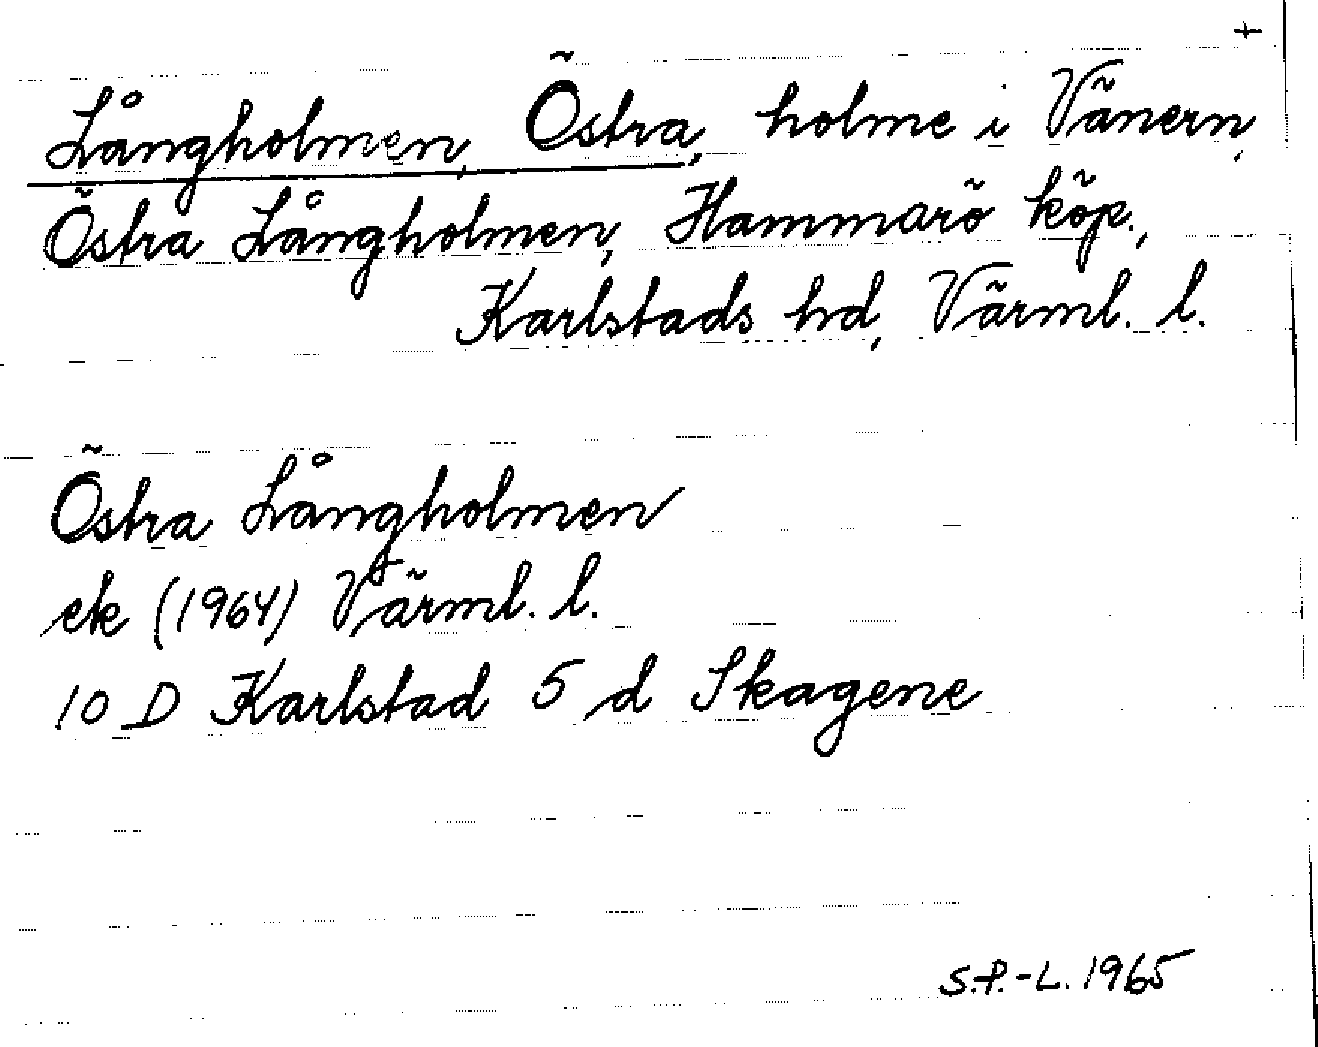 +
Långholmen, Östra, holme i Vänern,
Östra Långholmen, Hammarö köp.,
Karlstads hd, Värml. l.
Östra Långholmen
ek (1964) Värml. l.
10 D Karlstad 5 d Skagene
S.P.-L. 1965